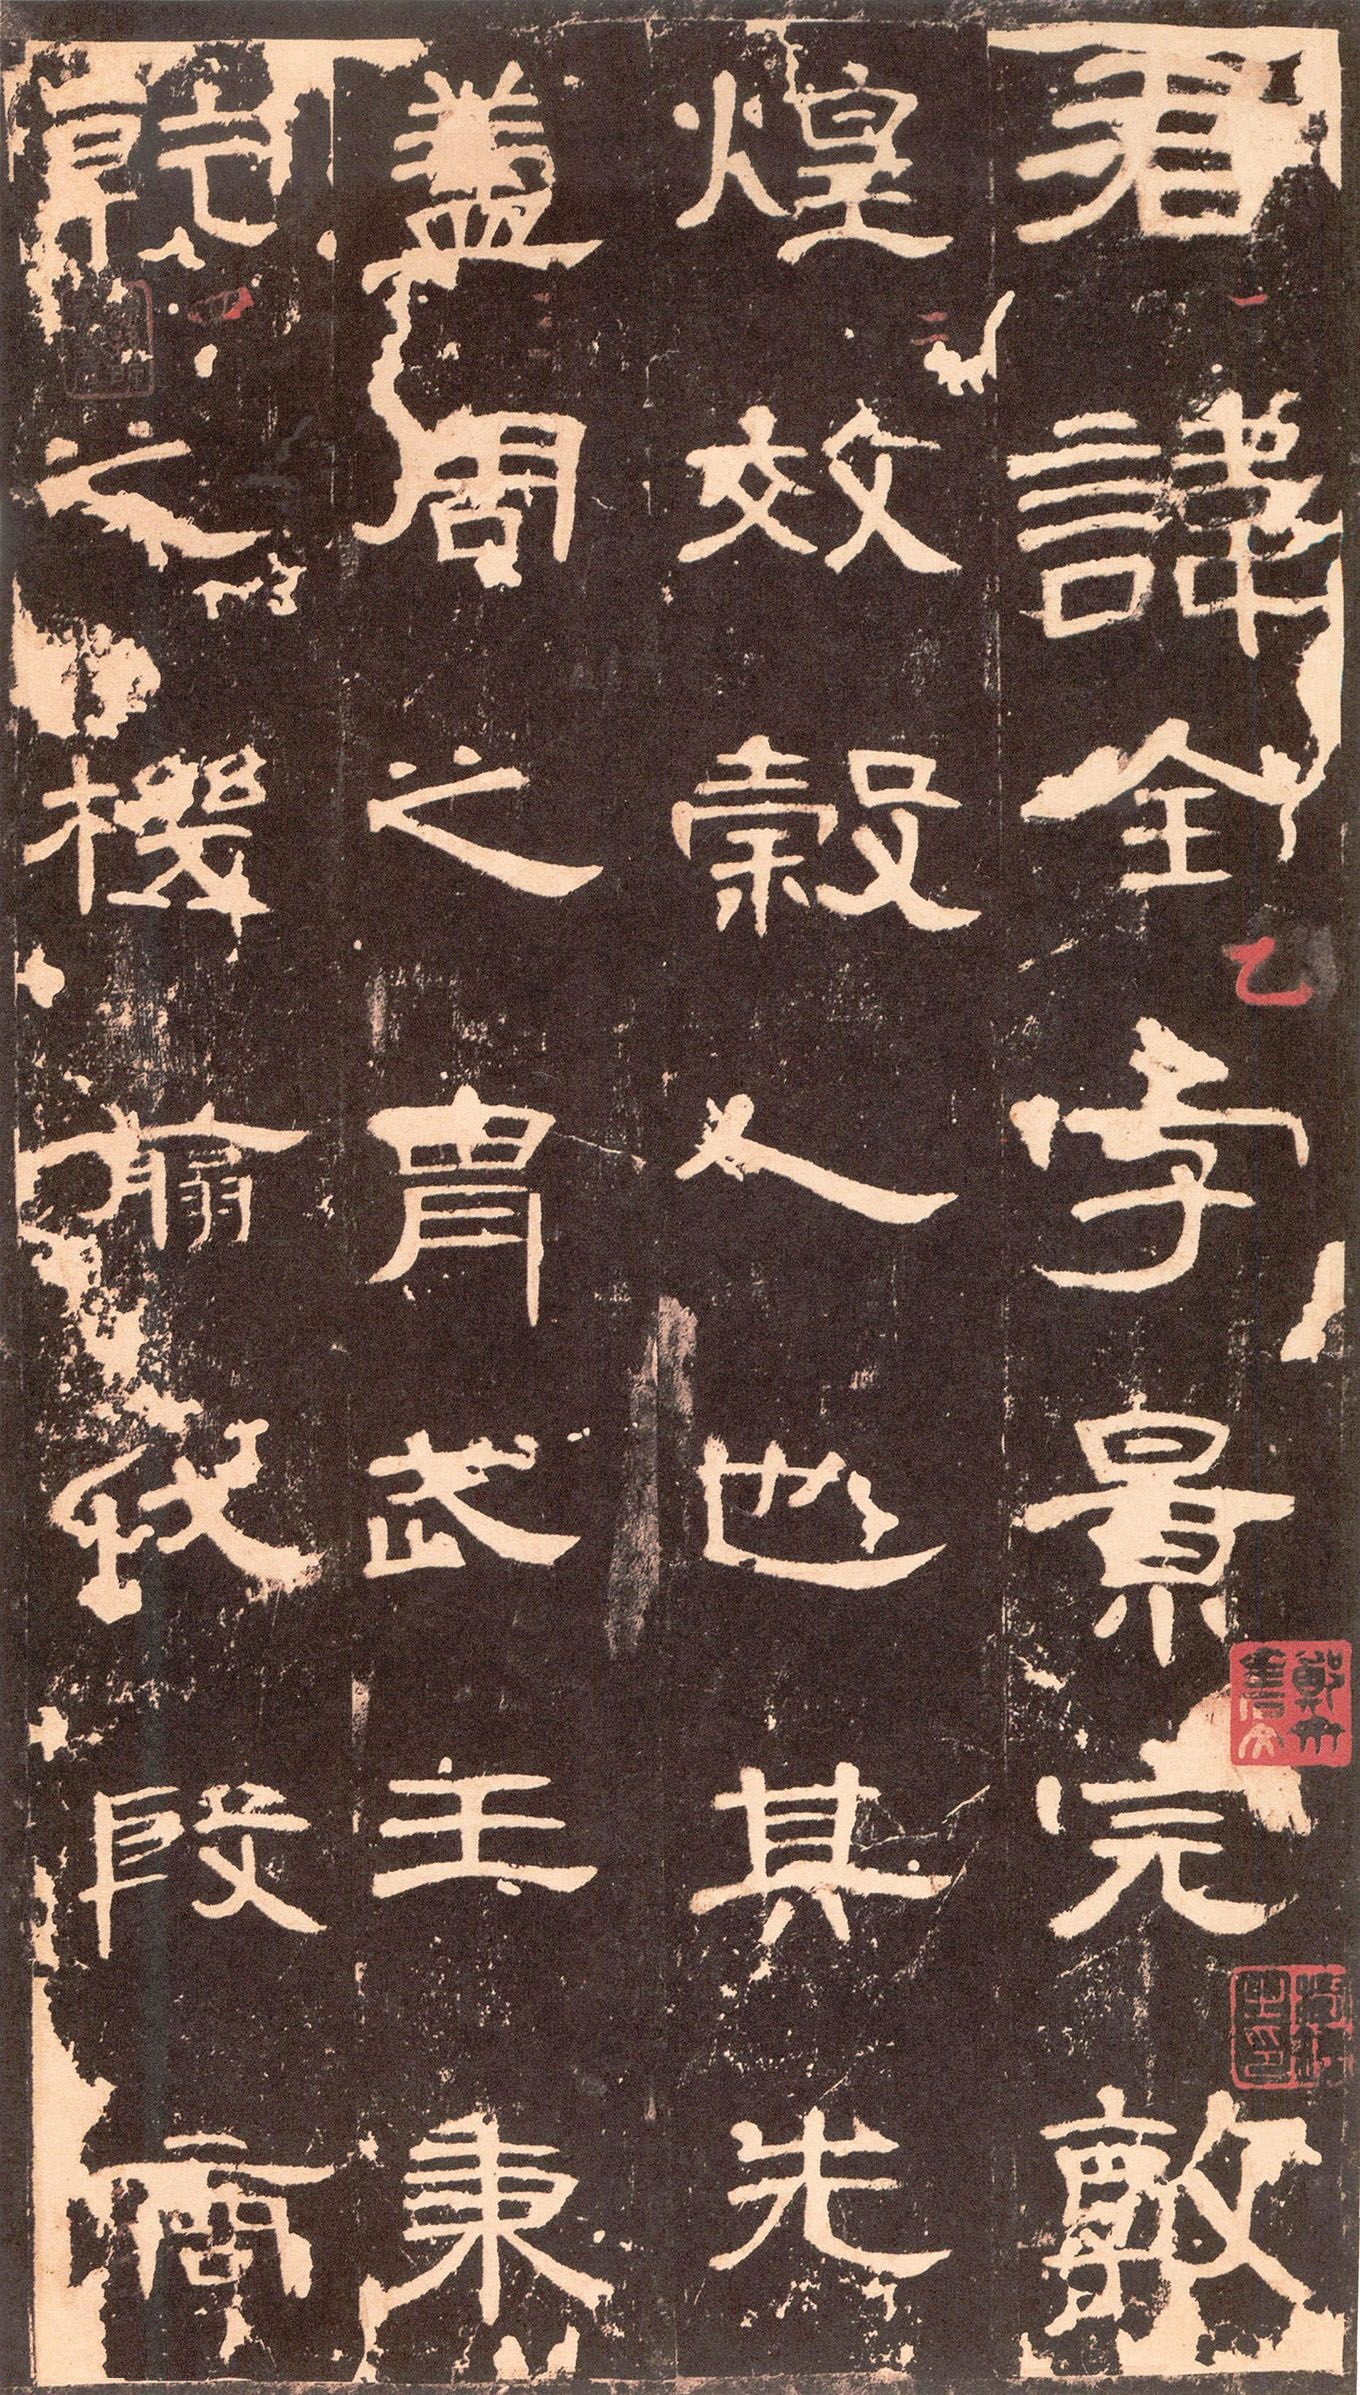 君諱全字景完敦
煌效穀人也其先
蓋周之冑武王秉
乾之機翦伐殷商
一
二
三
四
乙